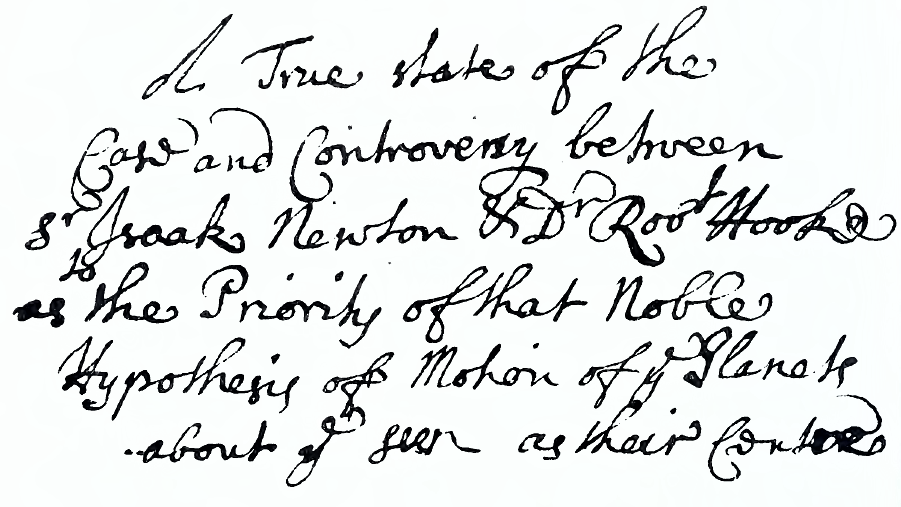 A True state of the
Case and Controversy between
Sr Isaak Newton & Dr Robt Hooke
as to the Priority of that Noble
Hypothesis of Motion of ye Planets
about ye sun as their Centers